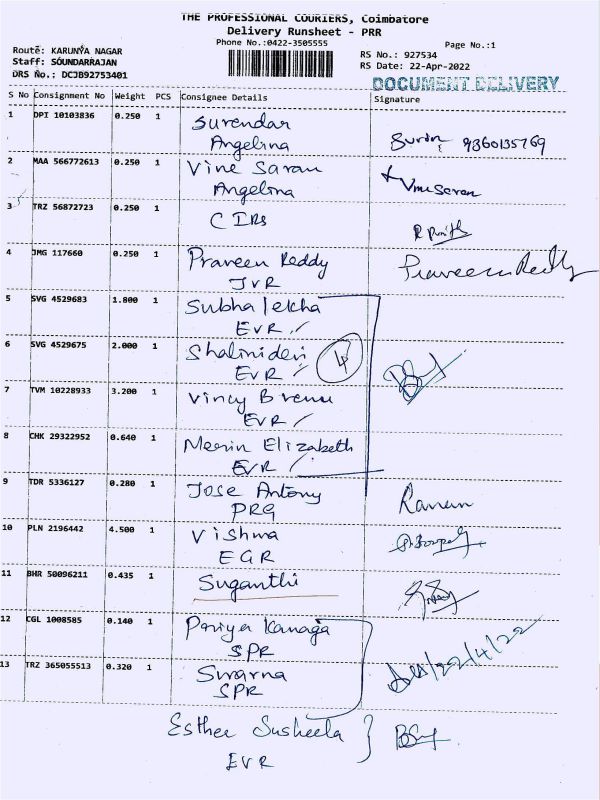 THE PROFESSIONAL COURIERS, Coimbatore
Delivery Runsheet - PRR
Phone No.:0422-3505555
Page No.:1
Route: KARUNYA NAGAR
Staff: SOUNDARRAJAN
DRS No.: DCJB92753401
RS No.: 927534
RS Date: 22-Apr-2022
DOCUMENT DELIVERY
S No Consignment No Weight PCS Consignee Details Signature
1 DPI 10103836 0.250 1 Surendar
Angelina
9360135769
2 MAA 566772613 0.250 1 Vine Saran
Angelina
3 TRZ 56872723 0.250 1 CIRs
4 JMG 117660 0.250 1 Praveen Reddy Praveen Reddy
JVR
5 SVG 4529683 1.800 1 Subhalekha
EVR
6 SVG 4529675 2.000 1 Shalinidevi 4
EVR
7 TVM 10228933 3.200 1 Vincy Brenu
EVR
8 CHK 29322952 0.640 1 Merin Elizabeth
EVR
9 TDR 5336127 0.280 1 Jose Antony
PRG
10 PLN 2196442 4.500 1 Vishwa
EGR
11 BHR 50096211 0.435 1 Suganthi
12 CGL 1008585 0.140 1 Kanaga
SPR
22/4/22
13 TRZ 365055513 0.320 1 Swarna
SPR
Esther Susheela
EVR